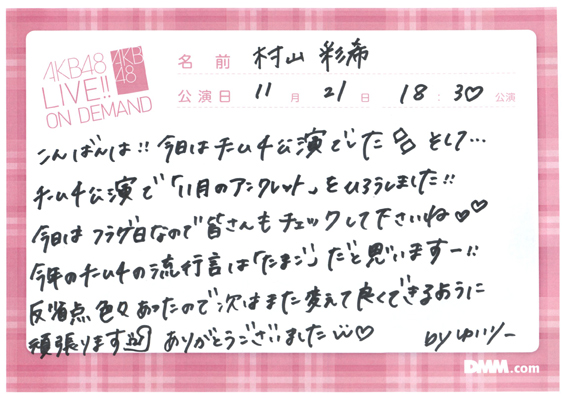 AKB48
LIVE!!
ON DEMAND
AKB
48
名前 村山 彩希
公演日 11月21日 18:30♡公演
こんばんは!! 今日はチーム4公演でした そして…
チーム4公演で「11月のアンクレット」をひろうしました!!
今日はブログ日なので皆さんもチェックして下さいね♡♡
今年のチーム4の流行言は「たまご」だと思いますー!!
反省点色々あったので次はまた変えて良くできるように
頑張ります ありがとうございました♡
by ゆいりー
DMM.com